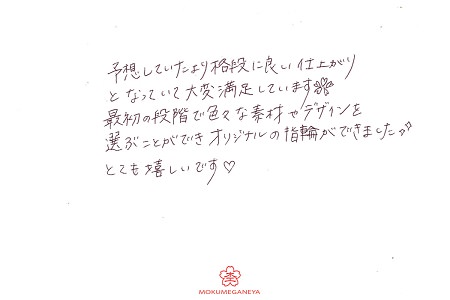 予想していたより格段に良い仕上がり
となっていて大変満足しています
最初の段階で色々な素材やデザインを
選ぶことができオリジナルの指輪ができました♪
とても嬉しいです♡
MOKUMEGANEYA